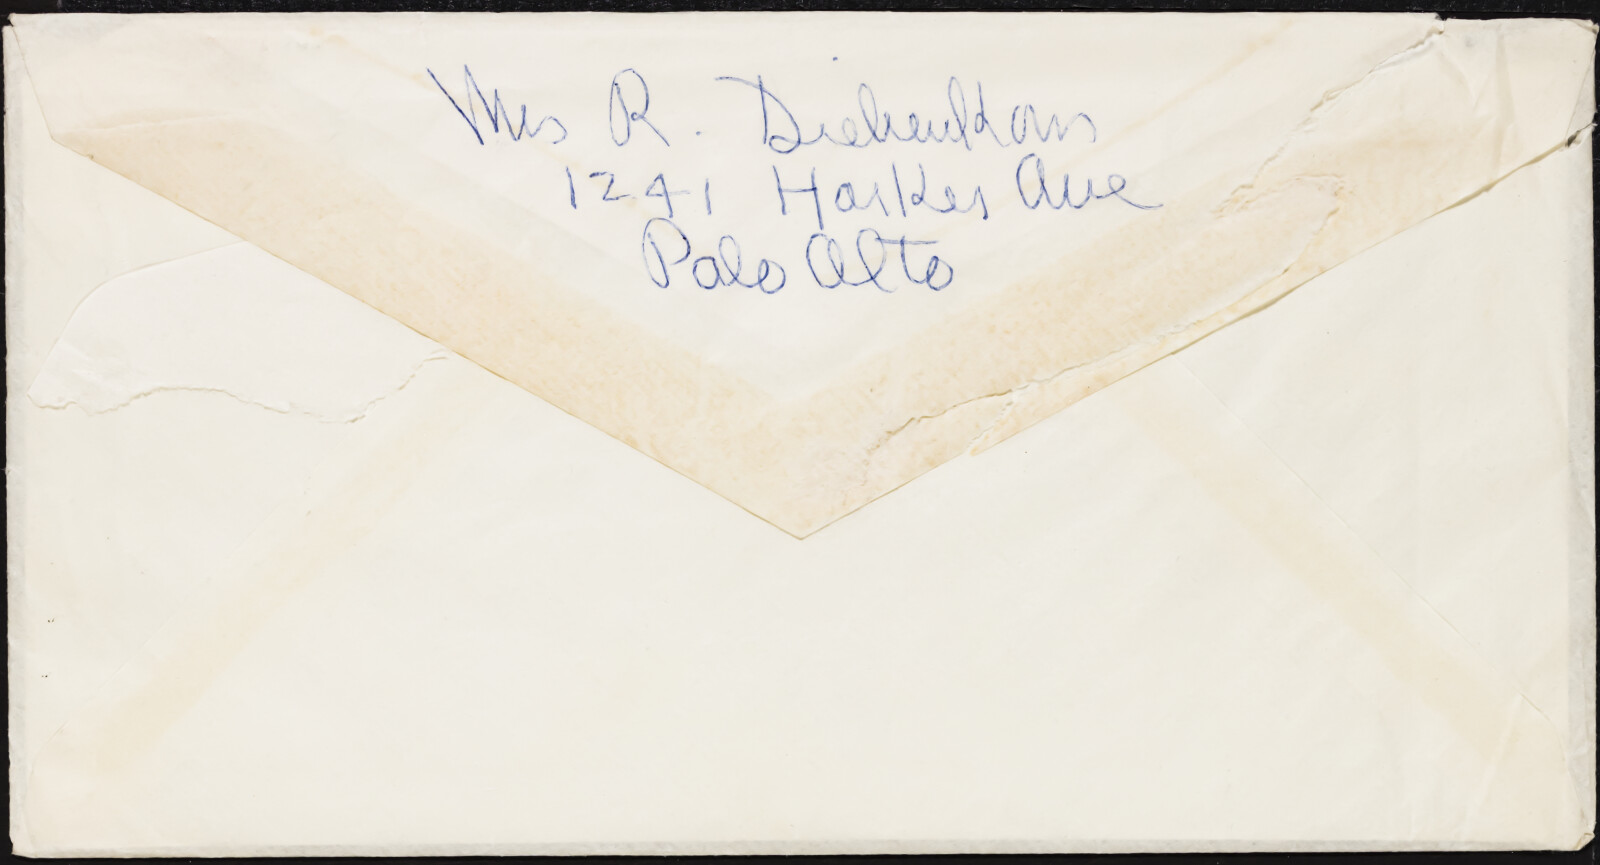 Mrs R. Diebenkorn
1241 Harker Ave
Palo Alto